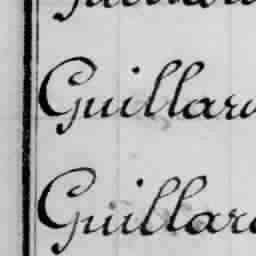 Guillard
Guillard